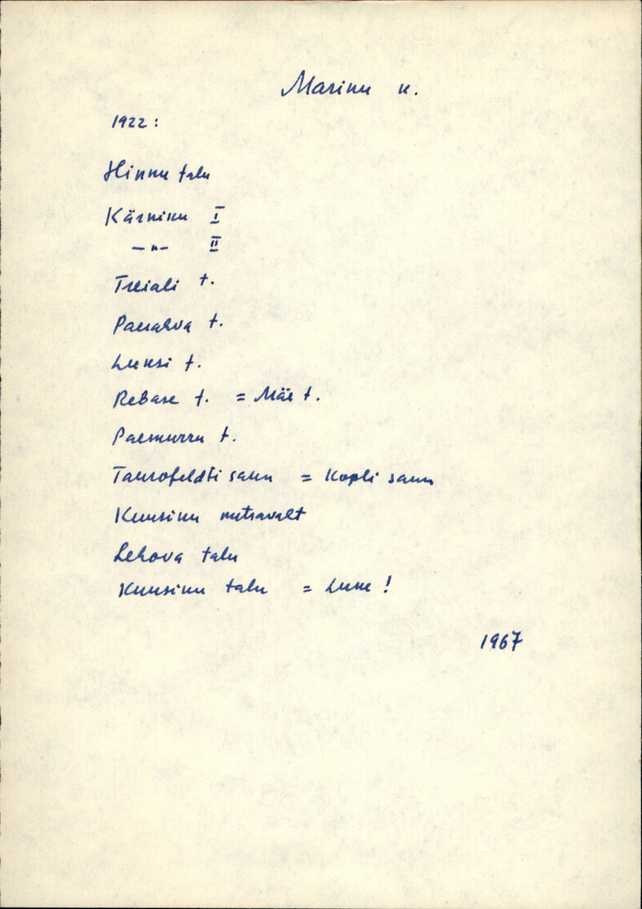 Marinu k.
1922:
Hinnu talu
Kärninu I
—"— II
Treiali t.
Paealva t.
Luksi t.
Rebase t. = Mäe t.
Paemurru t.
Taurofeldti saun = Kopli saun
Kuusinu metsavaht
Lehova talu
Kuusinu talu = Luse!
1967